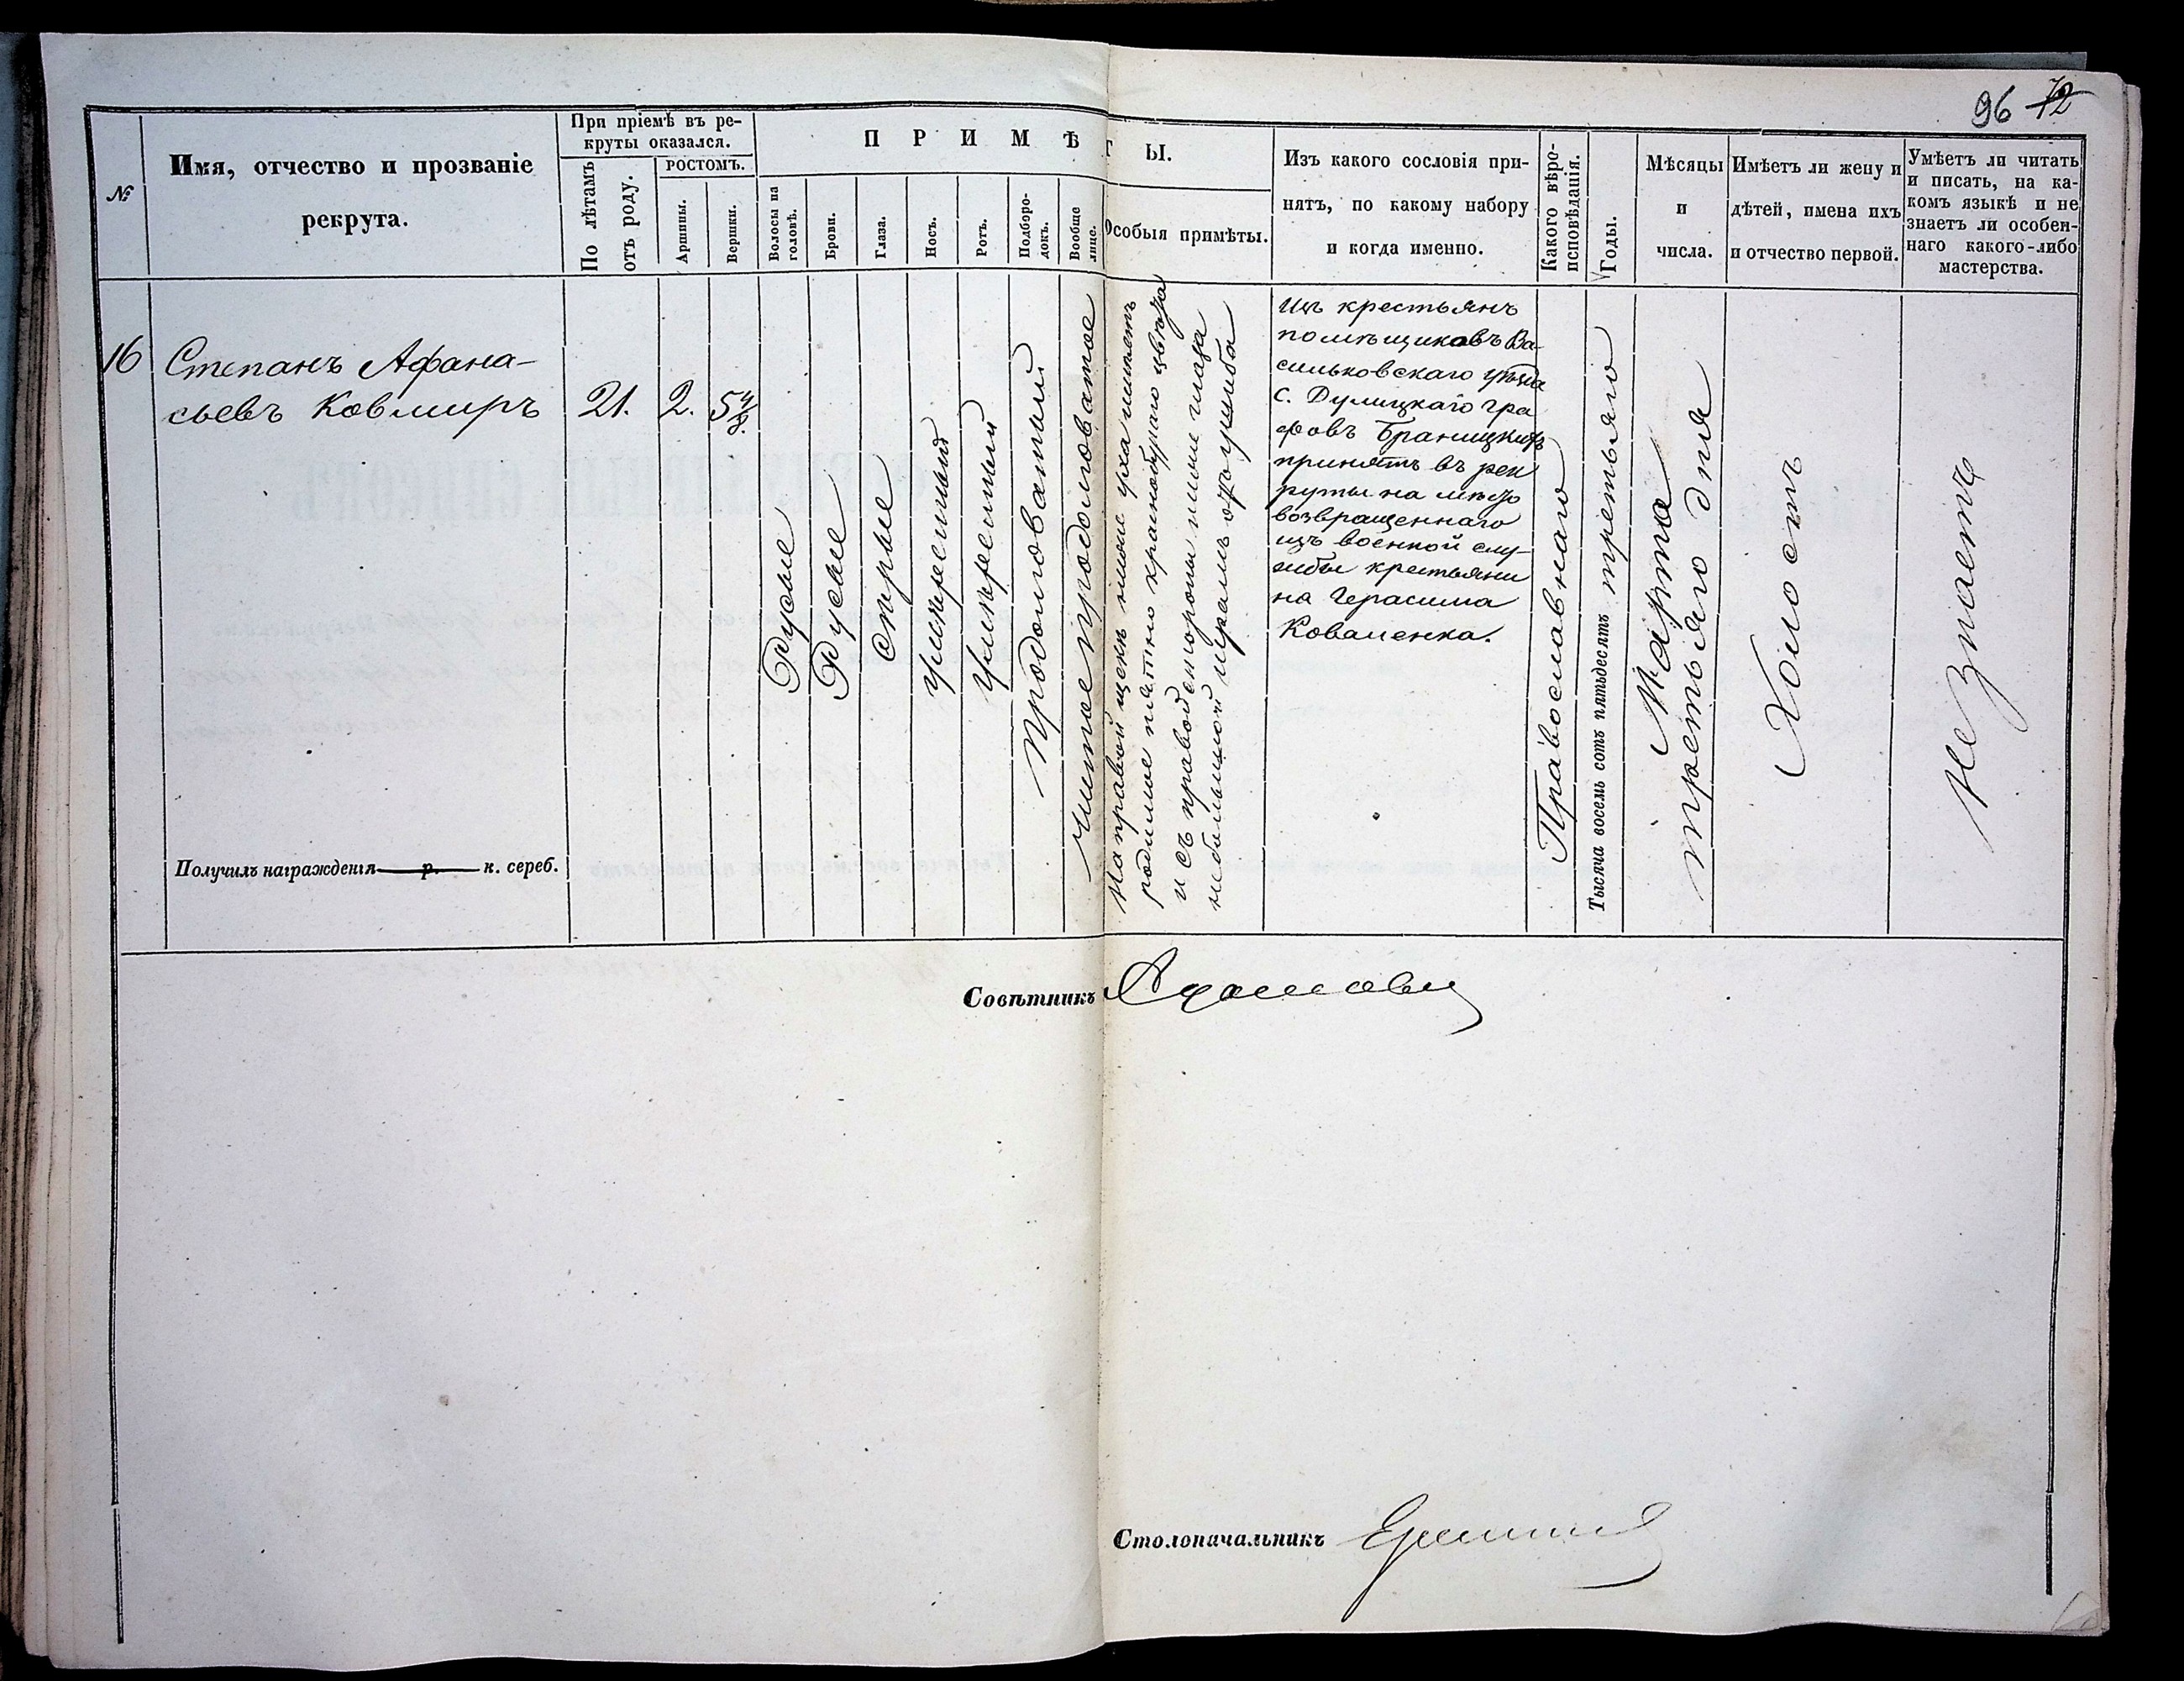 96 72
№
Имя, отчество и прозваніе
рекрута.
При пріемѣ въ ре-
круты оказался.
По лѣтамъ
отъ роду.
ростомъ.
Аршины.
Вершки.
ПРИМѢТЫ.
Волосы на
головѣ.
Брови.
Глаза.
Носъ.
Ротъ.
Подборо-
докъ.
Вообще
лице.
Особыя примѣты.
Изъ какого сословія при-
нятъ, по какому набору
и когда именно.
Какого вѣро-
исповѣданія.
Годы.
Мѣсяцы
и
числа.
Имѣетъ ли жену и
дѣтей, имена ихъ
и отчество первой.
Умѣетъ ли читать
и писать, на ка-
комъ языкѣ и не
знаетъ ли особен-
наго какого-либо
мастерства.
16
Степанъ Афана-
сьевъ
21.
2.
5 4/8.
Русые
Русые
Сѣрые
умѣренный
умѣренный
продолговатый
чистое продолговатое
на правой щекѣ ниже уха имѣетъ
родимое пятно краснобураго цвѣта
и съ правой стороны ниже глаза
небольшой шрамъ отъ ушиба
изъ крестьянъ
помѣщиковъ Ва-
сильковскаго уѣзда
с. Дулицкаго гра
фовъ Браницкихъ
принятъ въ рек
руты на мѣсто
возвращеннаго
изъ военной слу-
жбы крестьяни
на Герасима
Коваленка.
Православнаго
Тысяча восемь сотъ пятьдесятъ третьяго
Марта
третьяго дня
Холостъ
Не знаетъ
Получилъ награжденія р. к. сереб.
Совѣтникъ
Столоначальникъ